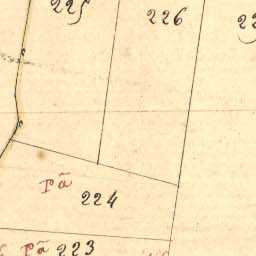 225
226
pã
224
pã 223